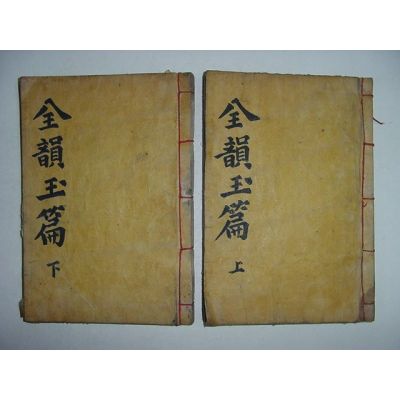 全韻玉篇
上
全韻玉篇
下